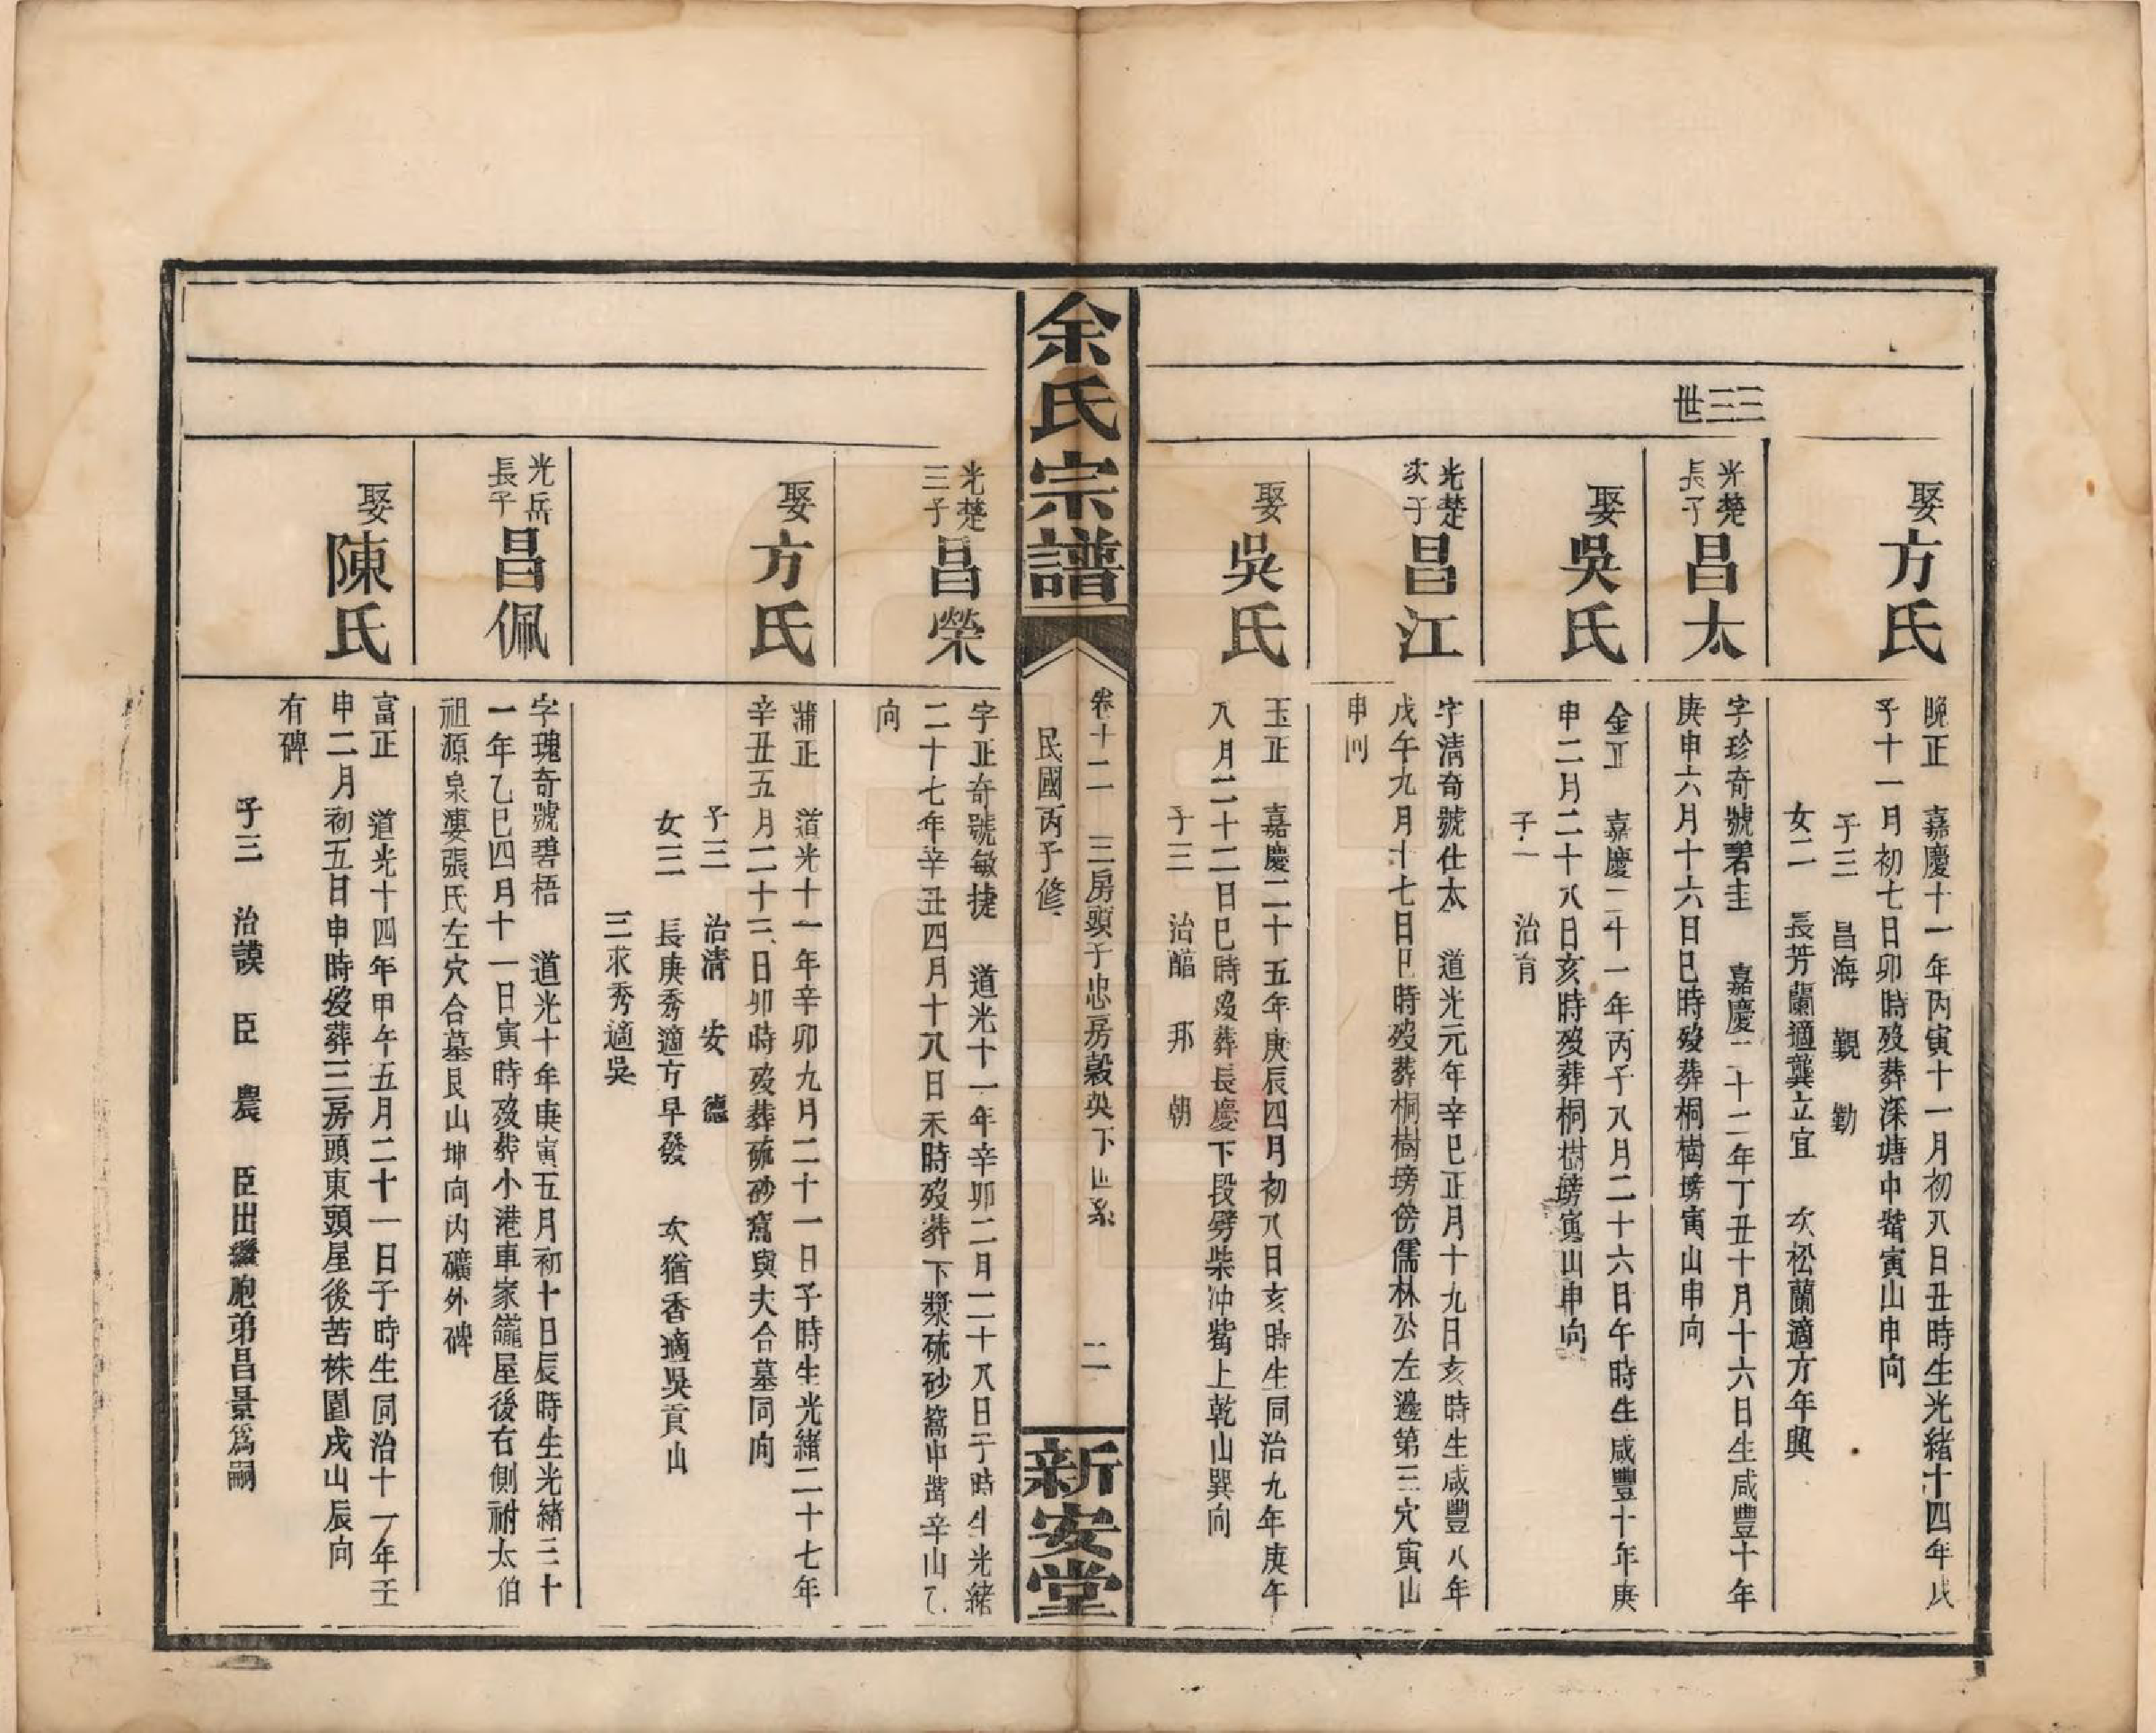 三三世
娶方氏
晩正 嘉慶十一年丙寅十一月初八日丑時生光緒十四年戊
子十一月初七日卯時歿葬深塘中嘴寅山申向
子三 昌海 覲 勤
女二 長芳蘭適龔立宜 次松蘭適方年興
光楚長子昌太
字珍奇號碧圭 嘉慶二十二年丁丑十月十六日生咸豐十年
庚申六月十六日巳時歿葬桐樹塝寅山申向
娶吳氏
金正 嘉慶二十一年丙子八月二十六日午時生咸豐十年庚
申二月二十八日亥時歿葬桐樹塝寅山申向
子一 治育
光楚次子昌江
字清奇號仕太 道光元年辛巳正月十九日亥時生咸豐八年
戊午九月十七日巳時歿葬桐樹塝傍儒林公左邊第三穴寅山
申向
娶吳氏
玉正 嘉慶二十五年庚辰四月初八日亥時生同治九年庚午
八月二十二日巳時歿葬長慶下段劈柴冲嘴上乾山巽向
子三 治 邦 朝
余氏宗譜
卷十二 三房頭子忠房穀英下世系 二
民國丙子修
新安堂
光楚三子昌榮
字正奇號敏捷 道光十一年辛卯二月二十八日子時生光緒
二十七年辛丑四月十八日未時歿葬下槳硫砂窩中嘴辛山乙
向
娶方氏
蒲正 道光十一年辛卯九月二十一日子時生光緒二十七年
辛丑五月二十三日卯時歿葬硫砂窩與夫合墓同向
子三 治清 安 德
女三 長庚秀適方早發 次猶香適吳貢山
三求秀適吳
光岳長子昌佩
字瑰奇號碧梧 道光十年庚寅五月初十日辰時生光緒三十
一年乙巳四月十一日寅時歿葬小港車家籠屋後右側祔太伯
祖源泉妻張氏左穴合墓艮山坤向內礦外碑
娶陳氏
富正 道光十四年甲午五月二十一日子時生同治十一年壬
申二月初五日申時歿葬三房頭東頭屋後苦株園戌山辰向
有碑
子三 治謨 臣 農 臣出繼胞弟昌景爲嗣